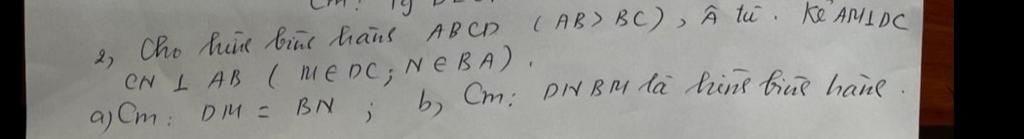 2, Cho hình bình hành ABCD (AB > BC), Â tù. Kẻ AM ⊥ DC
CN ⊥ AB (M ∈ DC; N ∈ BA).
a) Cm: DM = BN; b, Cm: DNBM là hình bình hành.